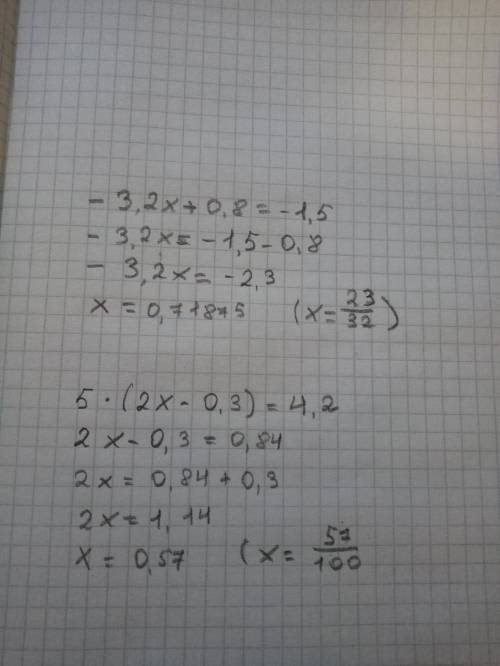 - 3,2x + 0,8 = -1,5
- 3,2x = -1,5 - 0,8
- 3,2x = -2,3
x = 0,71875 (x = 23/32)
5 · (2x - 0,3) = 4,2
2x - 0,3 = 0,84
2x = 0,84 + 0,3
2x = 1,14
x = 0,57 (x = 57/100